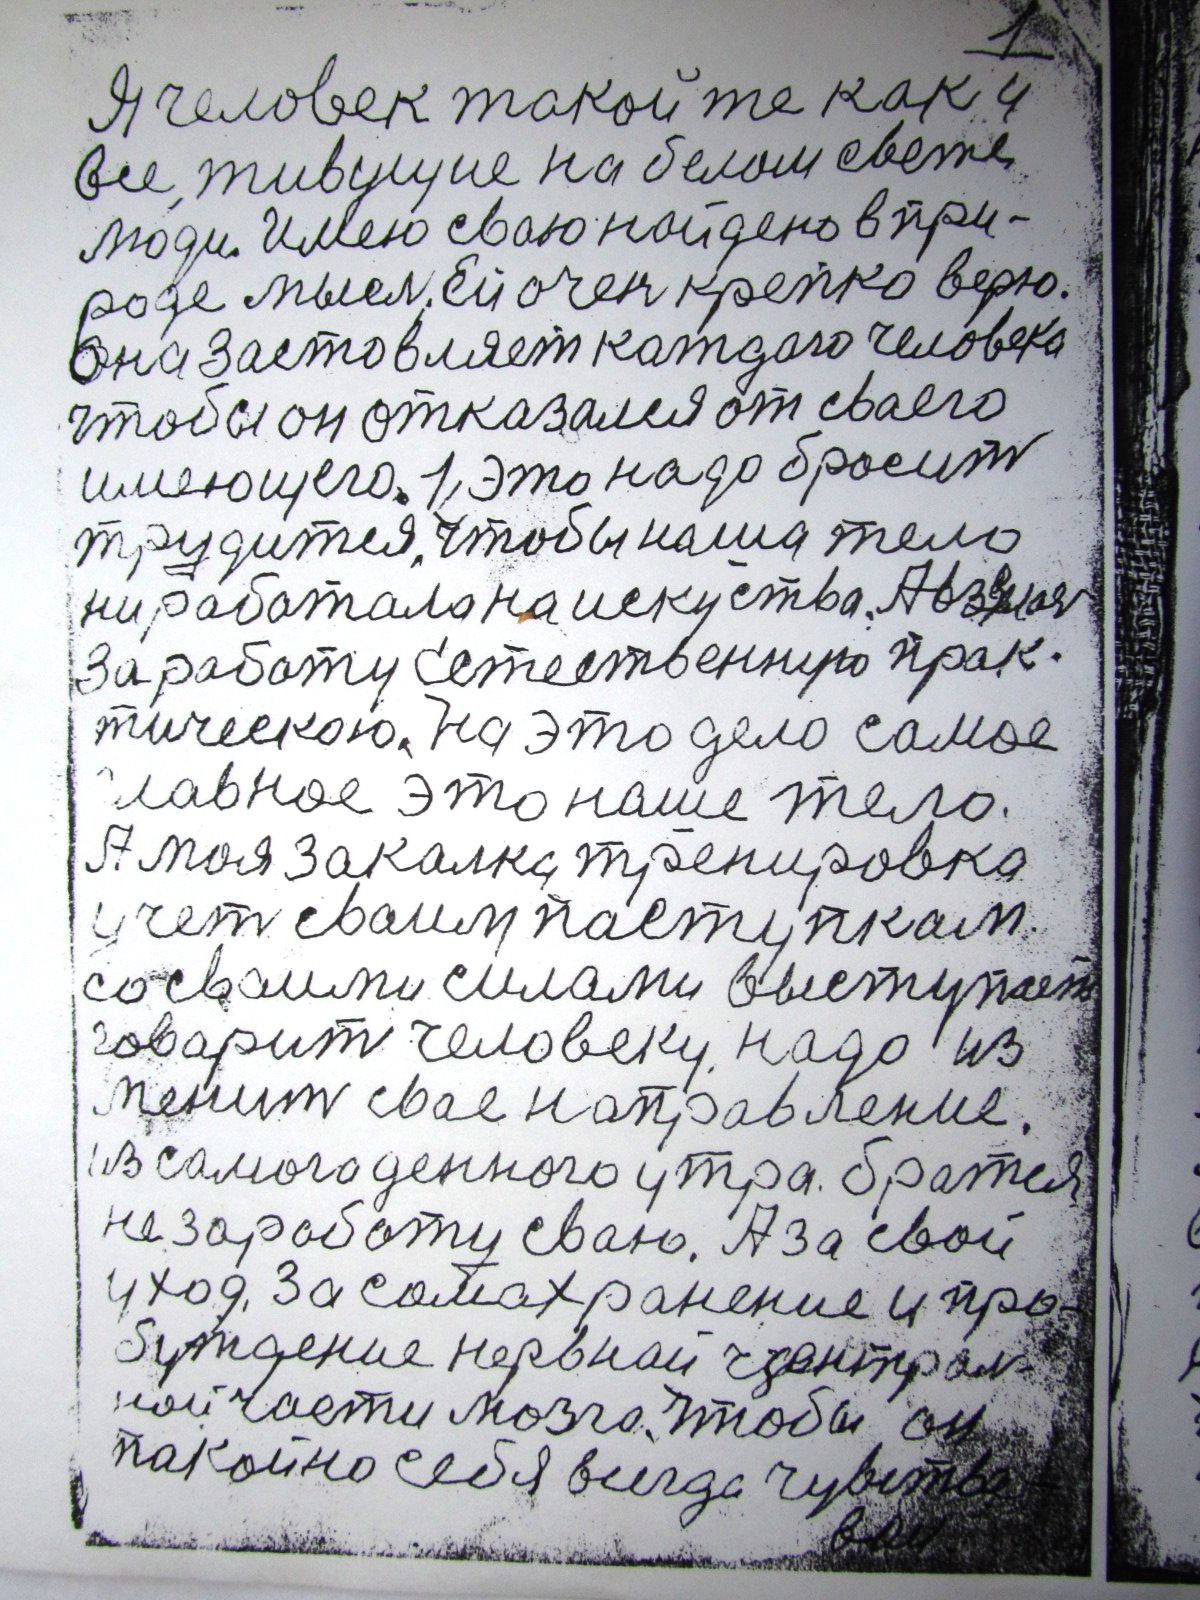 1
Я человек такой те как и
все, тивущие на белом свете
люди. Имею сваю найдено в при-
роде мысл, Ей очен крепко верю.
Она заставляет катдаго человека
чтобы он отказался от сваего
имеющего. 1, Это надо бросит
трудится, чтобы наша тело
ни работала на искуства. А взялся
за работу Естественную прак-
тическою. На это дело самое
главное это наше тело.
А моя закалка, тренировка
учет сваим паступкам
со сваими силами выступает
говарит человеку, надо из
менит свае направление.
из самога денного утра. братся
не за работу сваю. А за свой
уход, За сама хранение и про-
буждение нервнай централ-
ной части мозга. Чтобы он
пакойно себя всегда чувства-
вал